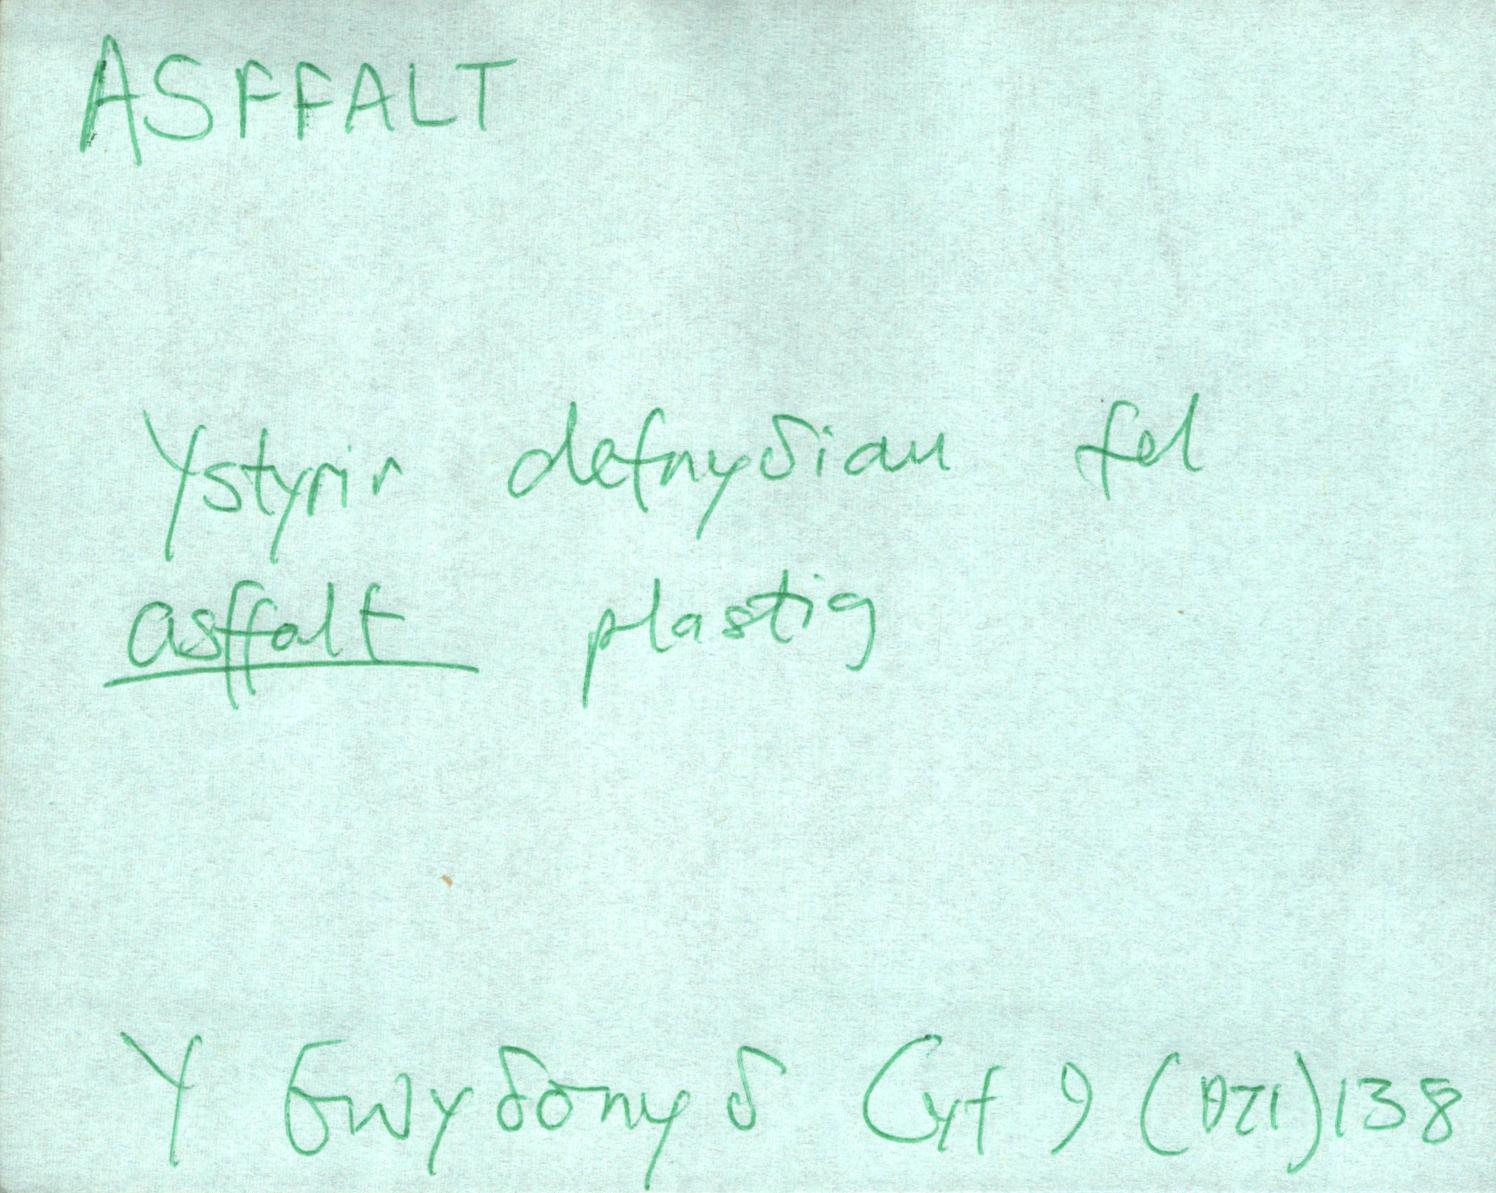 ASFFALT
Ystyrir defnyδiau fel
asffalt plastig
Y Gwyδonyδ Cyf 9 (1971) 138